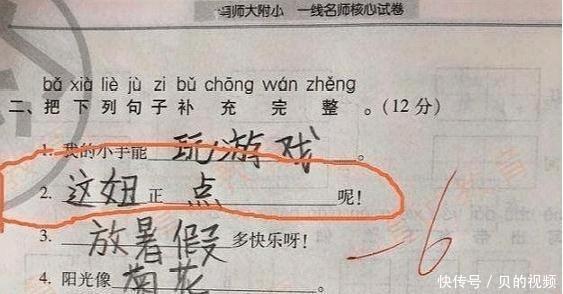 师大附小 一线名师核心试卷
bǎ xià liè jù zi bǔ chōng wán zhěng
二、把下列句子补充完整。(12分)
1. 我的小手能 玩游戏 。
2. 这妞正 点 呢!
3. 放暑假 多快乐呀!
-6
4. 阳光像 菊花
快传号／贝的视频